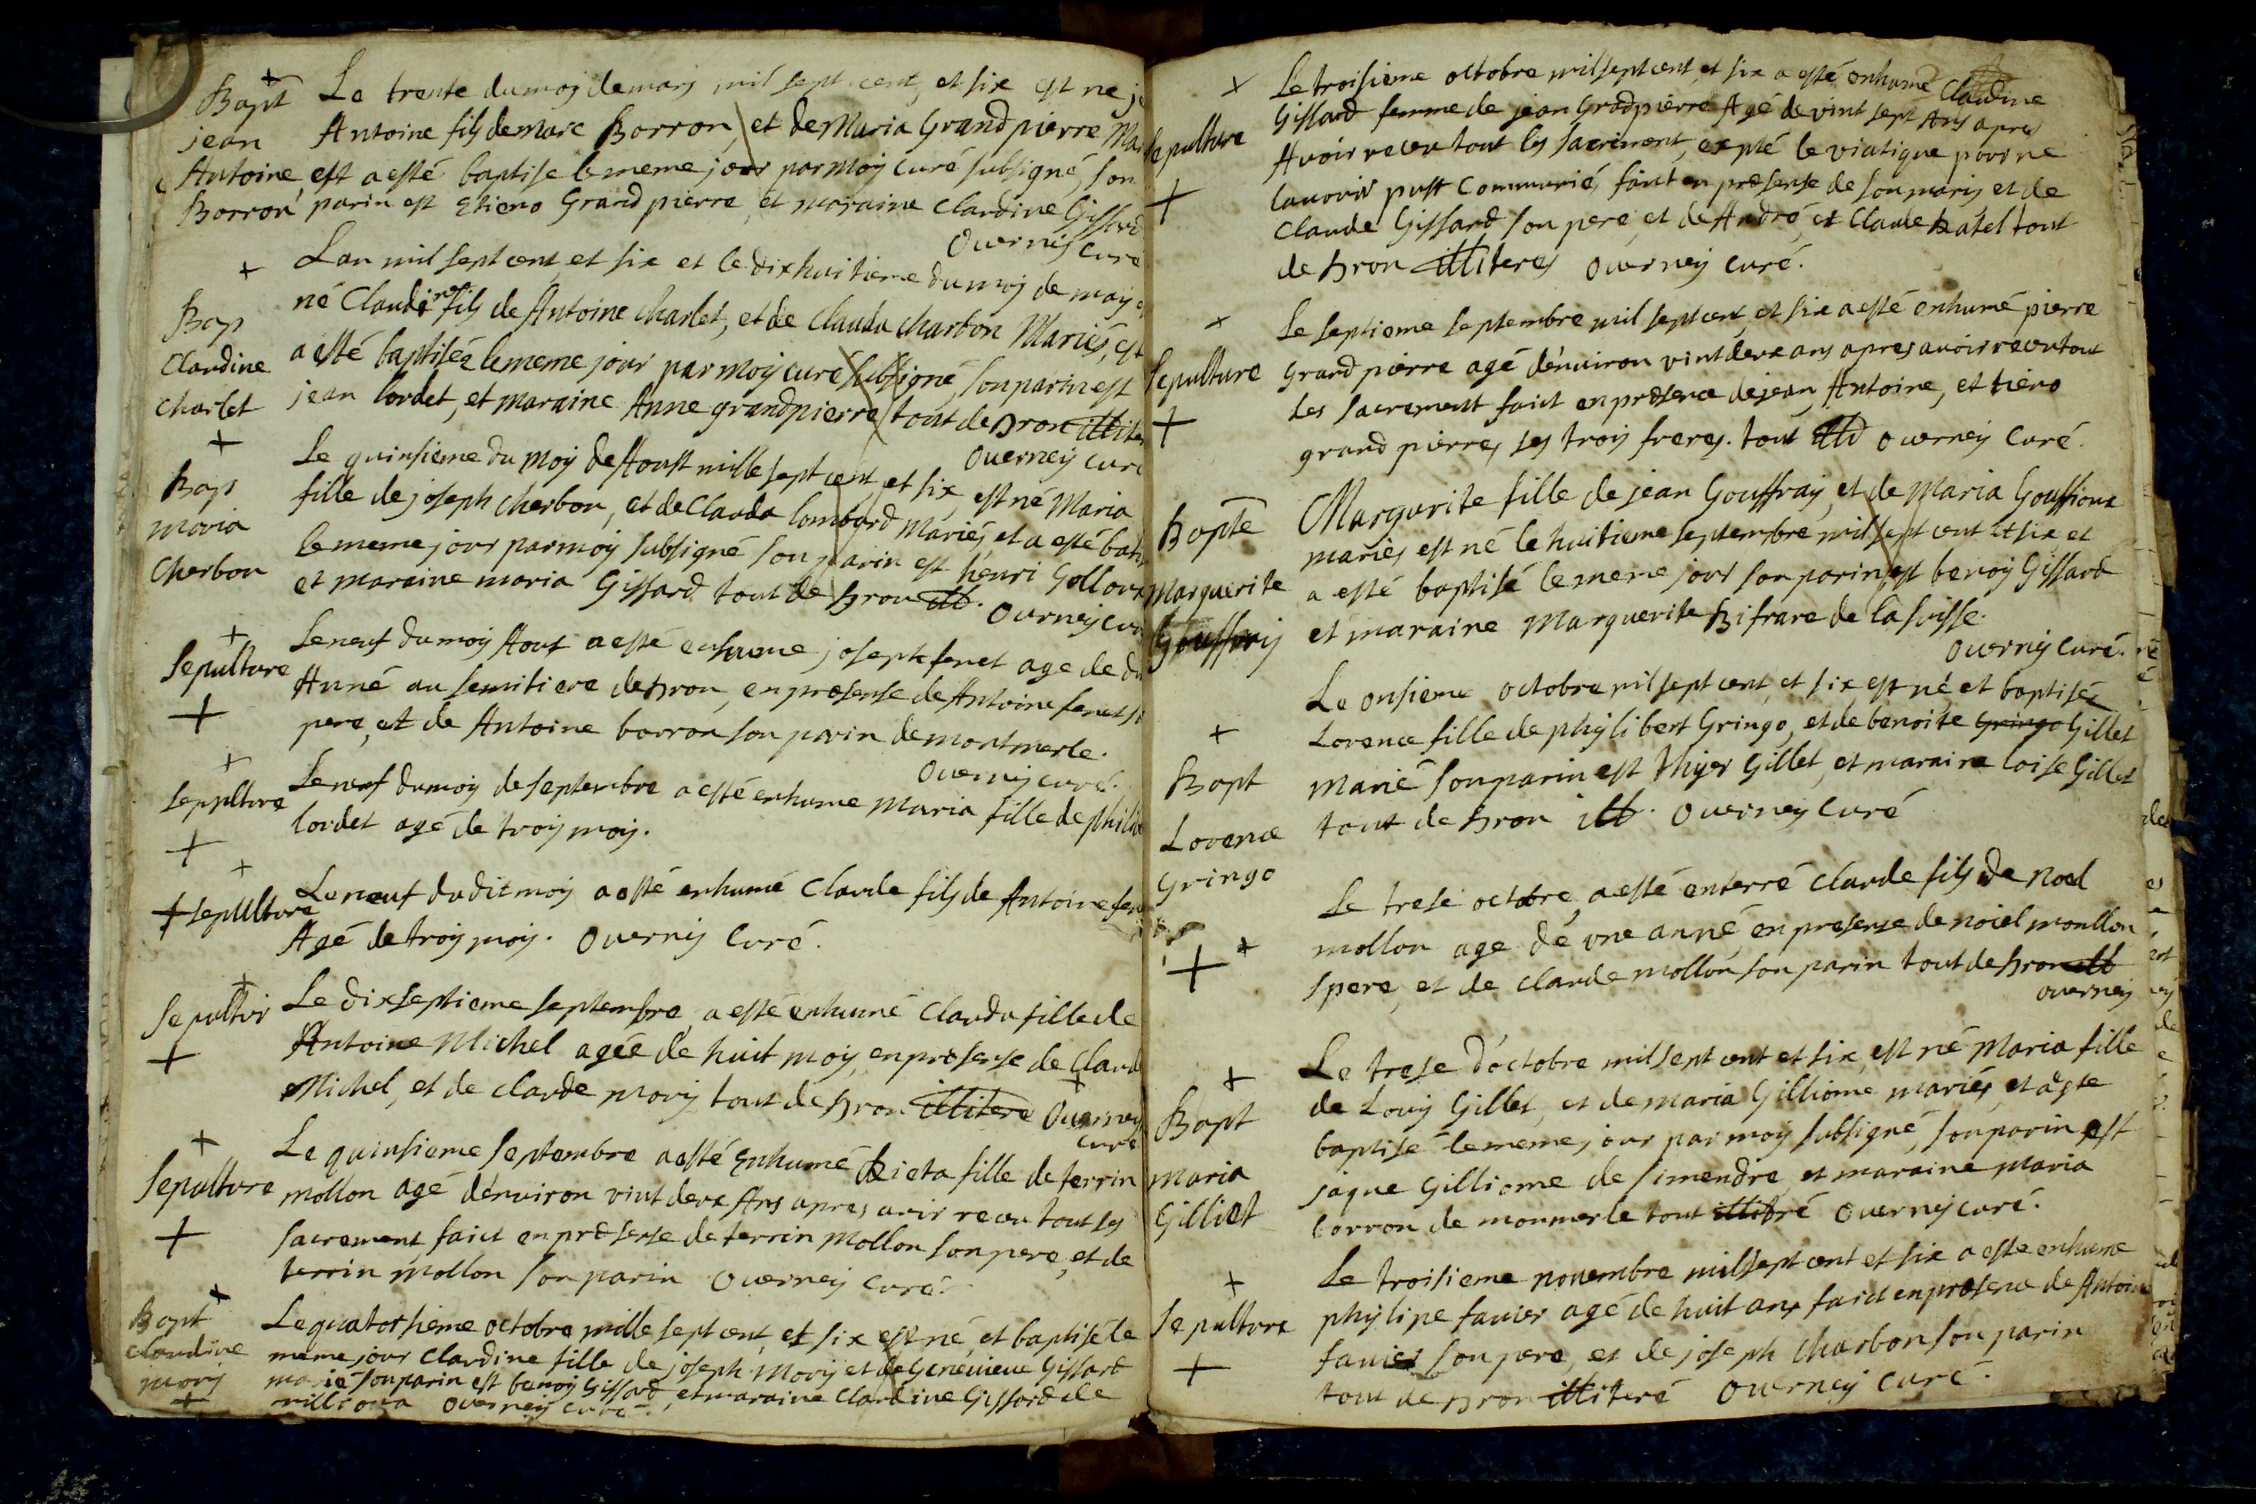 Bapt Le trente du moy de mars mil sept cent, et six est né je
jean Antoine fils de Marc Borron, et de Maria Grand pierre Ma
Antoine, est a esté baptise le meme jour par moy curé subsigné, son
Borron parin est Etieno Grand pierre, et maraine Claudine Gissard
Ouerney Curé
L'an mil sept cent et six et le dix huitieme du moy de may e
Bap né Claudine fils de Antoine Charlet, et de Clauda Charbon Mariés, est
Claudine a esté baptisée le meme jour par moy curé subsigné, son parin est
Charlet jean Cordet, et maraine Anne grandpierre tout de Bron illite
Ouerney Curé
Le quinsieme du moy de Aoust mille sept cent et six, est né Maria
Bap fille de joseph Cherbon, et de Clauda lombard Mariés, et a esté bati
Maria le meme jour par moy subsigné son parin est henri Gollour
Cherbon et maraine maria Gissard tout de Bron ill.
Ourney Cur
Sepulture Le neuf du moy Aout a esté enhume joseph fenet age de du
Anné au semitiere de Bron, en presense de Antoine fenet s
pere, et de Antoine borron son parin de montmerle.
Ouerney curé.
Sepulture Le neuf du moy de septembre a esté enhume Maria fille de phili
Cordet agé de troy moy.
Sepulture Le neuf dudit moy a esté enhumé Claude fils de Antoine fen
Agé de troy moy. Ouerney Curé.
Sepultur Le dixseptieme septembre, a esté enhumé Clauda fille de
Antoine Michel agée de huit moy, en presense de Claud
Michel, et de Claude mory tout de Bron illitere Ouerney
Curé
Le quinsieme septembre a esté Enhumé Bieta fille de ferrin
Sepulture mollon agé d'enuiron vint deux Ans apres avir receu tout les
sacrement faict en presense de ferrin mollon son pere, et de
terrin mollon son parin Ouerney Curé.
Bapt Le quatorsieme octobre mille sept cent, et six est né, et baptisé le
Claudine meme jour Claudine fille de joseph Mory et de Genevieue Gissard
mory marié son parin est benoy Gissard, et maraine Claudine Gissard de
milliona Ouerney Curé.
Le troisieme octobre mil sept cent, et six a esté enhumé Claudine
Gissard femme de jean Grandpierre Agé de vint sept Ans apres
Sepulture Avoir receu tout les sacriment, expté le viatique pour ne
lauouir pust Communié, faict en presense de son maris et de
Claude Gissard son pere, et de André, et Claude Batel tout
de Bron illiteres Ouerney Curé.
Le septieme septembre mil sept cent, et six a esté enhumé pierre
Sepulture Grand pierre agé d'enuiron vint deux ans apres auoir receu tout
les sacrement faict en presence de jean, Antoine, et tieno
grand pierre, ses troy freres. tout ill Ouerney Curé.
Bapte Margurite fille de jean Gouffray, et de Maria Gouffioux
mariés, est né le huitieme septembre mil sept cent et six et
Marguerite a esté baptisé le meme jour son parin est benoy Gissard
Gouffray et maraine Marguerite Bifrare de la suisse.
Ouerney Curé.
Le onsieme octobre mil sept cent, et six est né, et baptisée
Lorence fille de phylibert Gringo, et de benoite Gringo Gillet
Bapt Marié son parin est Vhyer Gillet, et maraine loise Gillet
Lorence tout de Bron ill. Ouerney Curé
Gringo
Le trese octobre, a esté enterré Claude fils de noel
mollon age de vne anné, en presense de noiel moullon
spere, et de Claude mollon son parin tout de Bron ill
Ouerney
Le trese d'octobre mil sept cent et six, est né Maria fille
Bapt de Louy Gillet, et de maria Gilliome mariés, et a este
baptisé le meme jour par moy subsigné, son parin est
Maria jaque Gilliome de simendre, et maraine Maria
Gilliet Corron de monmerle tout illitré Ouerney Curé.
Le troisieme nouembre mil sept cent et six a este enhume
Sepulture phylipe fauier agé de huit ans faict en presence de Antoine
fauier son pere, et de joseph Charbon son parin
tout de Bron illiteré Ouerney Curé.